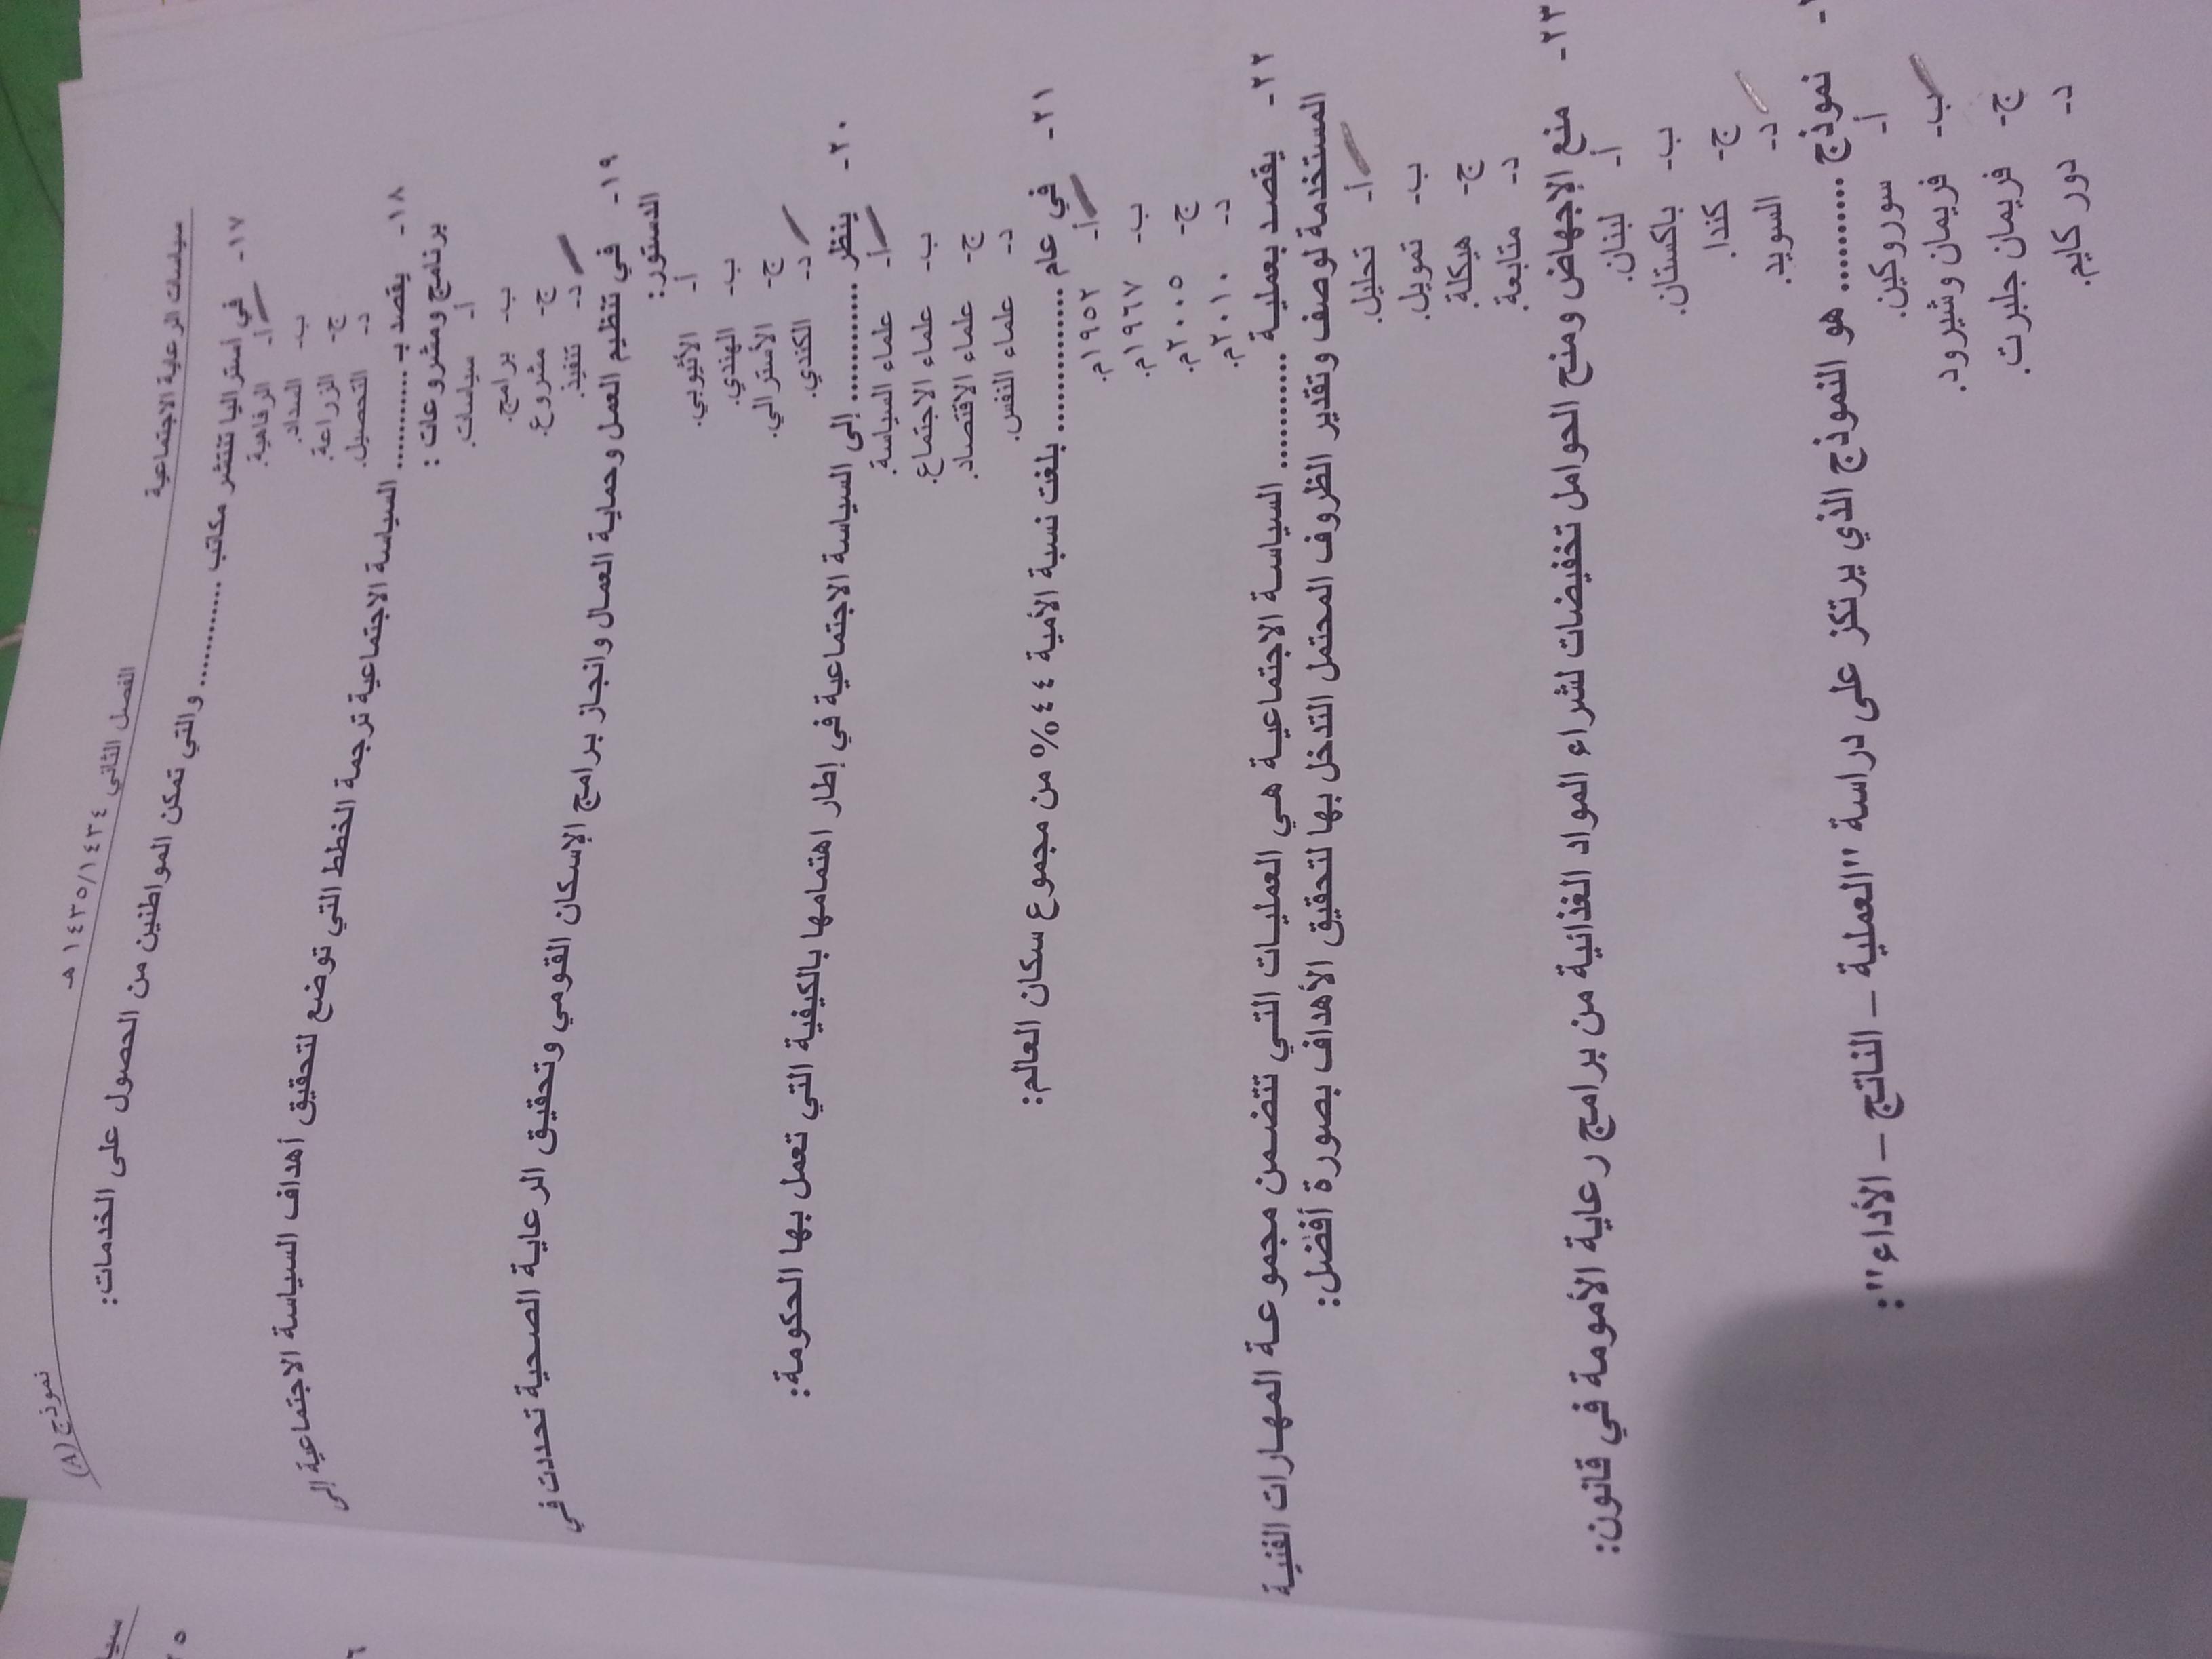 سياسات الرعاية الاجتماعية
الفصل الثاني ١٤٣٥/١٤٣٤ هـ
نموذج (A)
١٧- في أستراليا تنتشر مكاتب .......... والتي تمكن المواطنين من الحصول على الخدمات:
أ- الرفاهية.
ب- السداد.
ج- الزراعة.
د- التحصيل.
١٨- يقصد بـ .......... السياسة الاجتماعية ترجمة الخطط التي توضع لتحقيق أهداف السياسة الاجتماعية إلى
برنامج ومشروعات:
أ- سياسات.
ب- برامج.
ج- مشروع.
د- تنفيذ.
١٩- في تنظيم العمل وحماية العمال وانجاز برامج الإسكان القومي وتحقيق الرعاية الصحية تحددت في
الدستور:
أ- الأثيوبي.
ب- الهندي.
ج- الأسترالي.
د- الكندي.
٢٠- ينظر ............ إلى السياسة الاجتماعية في إطار اهتمامها بالكيفية التي تعمل بها الحكومة:
أ- علماء السياسة.
ب- علماء الاجتماع.
ج- علماء الاقتصاد.
د- علماء النفس.
٢١- في عام ............ بلغت نسبة الأمية ٤٤% من مجموع سكان العالم:
أ- ١٩٥٢م.
ب- ١٩٦٧م.
ج- ٢٠٠٥م.
د- ٢٠١٠م.
٢٢- يقصد بعملية ............ السياسة الاجتماعية هي العمليات التي تتضمن مجموعة المهارات الفنية
المستخدمة لوصف وتقدير الظروف المحتمل التدخل بها لتحقيق الأهداف بصورة أفضل:
أ- تحليل.
ب- تمويل.
ج- هيكلة.
د- متابعة.
٢٣- منع الإجهاض ومنح الحوامل تخفيضات لشراء المواد الغذائية من برامج رعاية الأمومة في قانون:
أ- لبنان.
ب- باكستان.
ج- كندا.
د- السويد.
نموذج .......... هو النموذج الذي يرتكز على دراسة "العملية – الناتج – الأداء":
أ- سوروكين.
ب- فريمان وشيرود.
ج- فريمان جلبرت.
د- دور كايم.